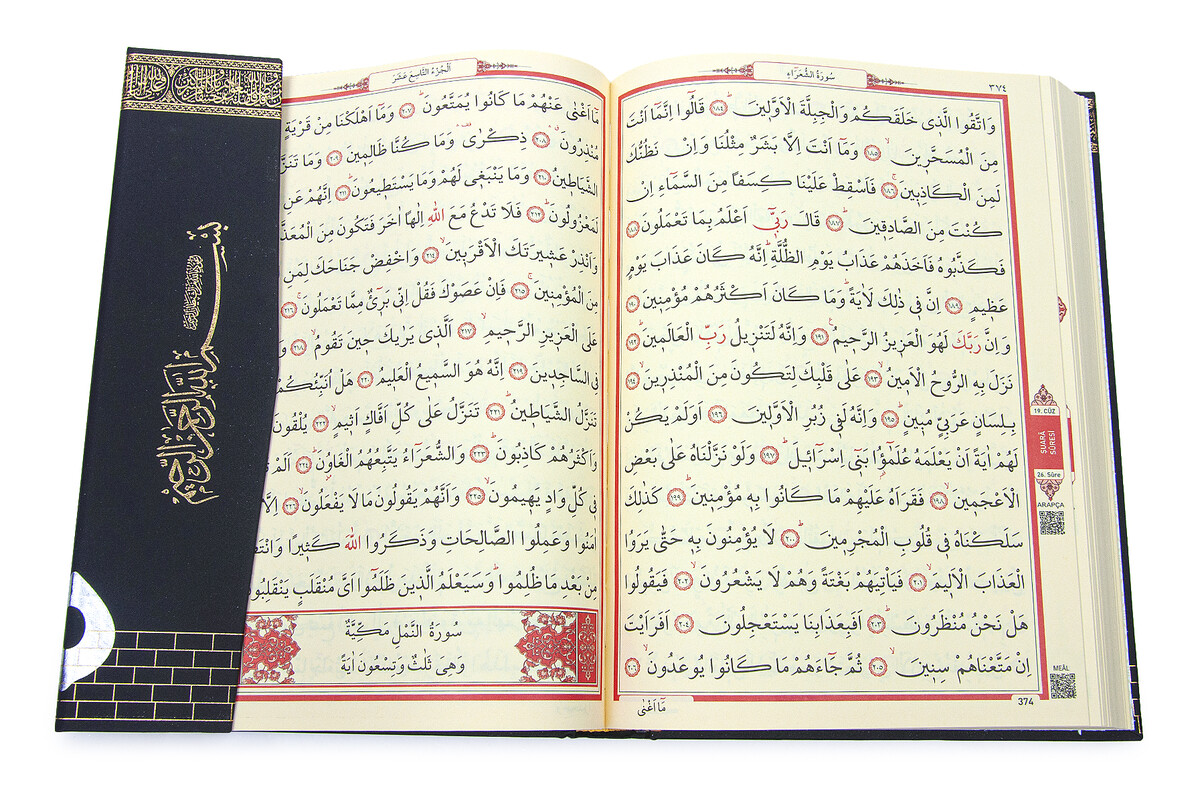 سُورَةُ الشُّعَرَاءِ
٣٧٤
وَاتَّقُوا الَّذٖي خَلَقَكُمْ وَالْجِبِلَّةَ الْاَوَّلٖينَ ﴿١٨٤﴾ قَالُٓوا اِنَّمَٓا اَنْتَ
مِنَ الْمُسَحَّرٖينَ ﴿١٨٥﴾ وَمَٓا اَنْتَ اِلَّا بَشَرٌ مِثْلُنَا وَاِنْ نَظُنُّكَ
لَمِنَ الْكَاذِبٖينَ ﴿١٨٦﴾ فَاَسْقِطْ عَلَيْنَا كِسَفًا مِنَ السَّمَٓاءِ اِنْ
كُنْتَ مِنَ الصَّادِقٖينَ ﴿١٨٧﴾ قَالَ رَبّٖٓي اَعْلَمُ بِمَا تَعْمَلُونَ ﴿١٨٨﴾
فَكَذَّبُوهُ فَاَخَذَهُمْ عَذَابُ يَوْمِ الظُّلَّةِ اِنَّهُ كَانَ عَذَابَ يَوْمٍ
عَظٖيمٍ ﴿١٨٩﴾ اِنَّ فٖي ذٰلِكَ لَاٰيَةً وَمَا كَانَ اَكْثَرُهُمْ مُؤْمِنٖينَ ﴿١٩٠﴾
وَاِنَّ رَبَّكَ لَهُوَ الْعَزٖيزُ الرَّحٖيمُ ﴿١٩١﴾ وَاِنَّهُ لَتَنْزٖيلُ رَبِّ الْعَالَمٖينَ ﴿١٩٢﴾
نَزَلَ بِهِ الرُّوحُ الْاَمٖينُ ﴿١٩٣﴾ عَلٰى قَلْبِكَ لِتَكُونَ مِنَ الْمُنْذِرٖينَ ﴿١٩٤﴾
بِلِسَانٍ عَرَبِيٍّ مُبٖينٍ ﴿١٩٥﴾ وَاِنَّهُ لَفٖي زُبُرِ الْاَوَّلٖينَ ﴿١٩٦﴾ اَوَلَمْ يَكُنْ
لَهُمْ اٰيَةً اَنْ يَعْلَمَهُ عُلَمٰٓؤُا بَنٖٓي اِسْرَٓائٖيلَ ﴿١٩٧﴾ وَلَوْ نَزَّلْنَاهُ عَلٰى بَعْضِ
الْاَعْجَمٖينَ ﴿١٩٨﴾ فَقَرَاَهُ عَلَيْهِمْ مَا كَانُوا بِهٖ مُؤْمِنٖينَ ﴿١٩٩﴾ كَذٰلِكَ
سَلَكْنَاهُ فٖي قُلُوبِ الْمُجْرِمٖينَ ﴿٢٠٠﴾ لَا يُؤْمِنُونَ بِهٖ حَتّٰى يَرَوُا
الْعَذَابَ الْاَلٖيمَ ﴿٢٠١﴾ فَيَاْتِيَهُمْ بَغْتَةً وَهُمْ لَا يَشْعُرُونَ ﴿٢٠٢﴾ فَيَقُولُوا
هَلْ نَحْنُ مُنْظَرُونَ ﴿٢٠٣﴾ اَفَبِعَذَابِنَا يَسْتَعْجِلُونَ ﴿٢٠٤﴾ اَفَرَاَيْتَ
اِنْ مَتَّعْنَاهُمْ سِنٖينَ ﴿٢٠٥﴾ ثُمَّ جَٓاءَهُمْ مَا كَانُوا يُوعَدُونَ ﴿٢٠٦﴾
374
مَٓا اَغْنٰى
19. CÜZ
ŞUARÂ
SÛRESİ
26. Sûre
ARAPÇA
MEÂL
اَلْجُزْءُ التَّاسِعَ عَشَرَ
مَٓا اَغْنٰى عَنْهُمْ مَا كَانُوا يُمَتَّعُونَ ﴿٢٠٧﴾ وَمَٓا اَهْلَكْنَا مِنْ قَرْيَةٍ
مُنْذِرُونَ ﴿٢٠٨﴾ ذِكْرٰى وَمَا كُنَّا ظَالِمٖينَ ﴿٢٠٩﴾ وَمَا تَنَزَّ
الشَّيَاطٖينُ ﴿٢١٠﴾ وَمَا يَنْبَغٖي لَهُمْ وَمَا يَسْتَطٖيعُونَ ﴿٢١١﴾ اِنَّهُمْ عَنِ
لَمَعْزُولُونَ ﴿٢١٢﴾ فَلَا تَدْعُ مَعَ اللّٰهِ اِلٰهًا اٰخَرَ فَتَكُونَ مِنَ الْمُعَذَّ
وَاَنْذِرْ عَشٖيرَتَكَ الْاَقْرَبٖينَ ﴿٢١٤﴾ وَاخْفِضْ جَنَاحَكَ لِمَنِ
مِنَ الْمُؤْمِنٖينَ ﴿٢١٥﴾ فَاِنْ عَصَوْكَ فَقُلْ اِنّٖي بَرٖٓيءٌ مِمَّا تَعْمَلُونَ ﴿٢١٦﴾
عَلَى الْعَزٖيزِ الرَّحٖيمِ ﴿٢١٧﴾ اَلَّذٖي يَرٰيكَ حٖينَ تَقُومُ ﴿٢١٨﴾ وَ
فِي السَّاجِدٖينَ ﴿٢١٩﴾ اِنَّهُ هُوَ السَّمٖيعُ الْعَلٖيمُ ﴿٢٢٠﴾ هَلْ اُنَبِّئُكُمْ
تَنَزَّلُ الشَّيَاطٖينُ ﴿٢٢١﴾ تَنَزَّلُ عَلٰى كُلِّ اَفَّاكٍ اَثٖيمٍ ﴿٢٢٢﴾ يُلْقُونَ
وَاَكْثَرُهُمْ كَاذِبُونَ ﴿٢٢٣﴾ وَالشُّعَرَٓاءُ يَتَّبِعُهُمُ الْغَاوُنَ ﴿٢٢٤﴾ اَلَمْ
فٖي كُلِّ وَادٍ يَهٖيمُونَ ﴿٢٢٥﴾ وَاَنَّهُمْ يَقُولُونَ مَا لَا يَفْعَلُونَ ﴿٢٢٦﴾ اِلَّا
اٰمَنُوا وَعَمِلُوا الصَّالِحَاتِ وَذَكَرُوا اللّٰهَ كَثٖيرًا وَانْتَصَ
مِنْ بَعْدِ مَا ظُلِمُوا وَسَيَعْلَمُ الَّذٖينَ ظَلَمُٓوا اَيَّ مُنْقَلَبٍ يَنْقَلِبُونَ
سُورَةُ النَّمْلِ مَكِّيَّةٌ
وَهِيَ ثَلٰثٌ وَتِسْعُونَ اٰيَةً
بِسْمِ اللّٰهِ الرَّحْمٰنِ الرَّحٖيمِ